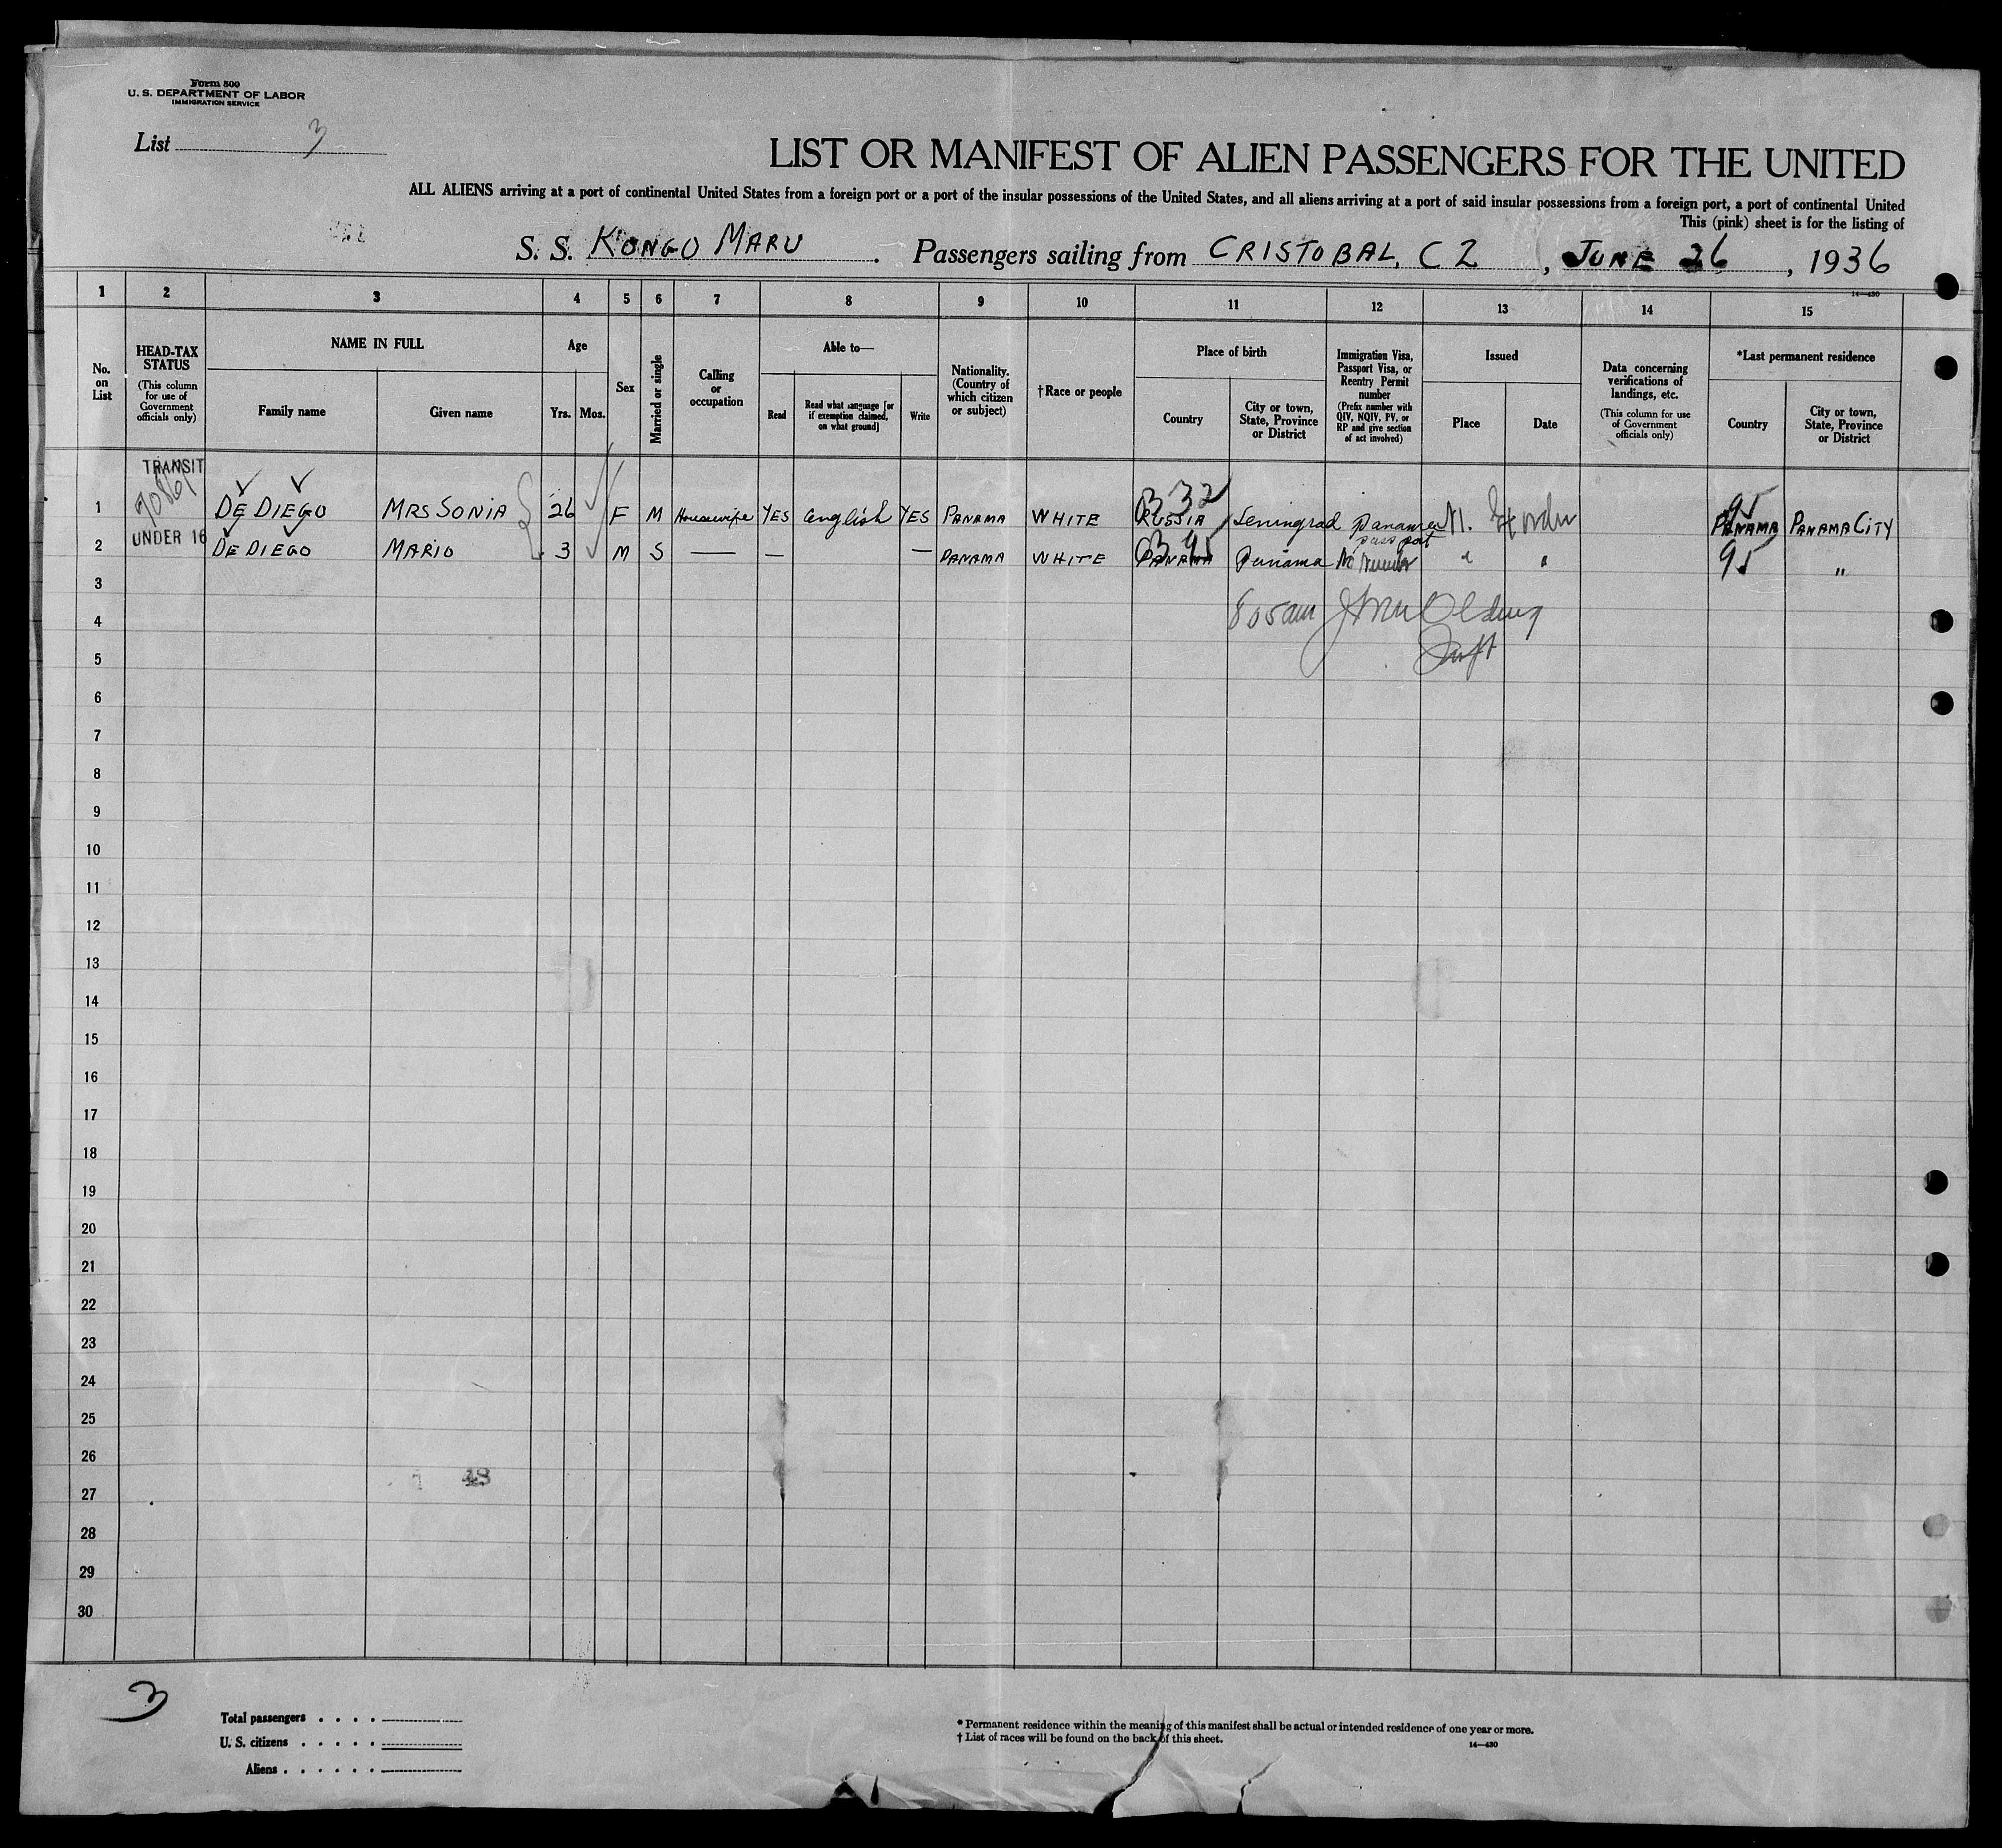 Form 500
U. S. DEPARTMENT OF LABOR
IMMIGRATION SERVICE
List 3
LIST OR MANIFEST OF ALIEN PASSENGERS FOR THE UNITED
ALL ALIENS arriving at a port of continental United States from a foreign port or a port of the insular possessions of the United States, and all aliens arriving at a port of said insular possessions from a foreign port, a port of continental United
This (pink) sheet is for the listing of
S. S. KONGO MARU . Passengers sailing from CRISTOBAL, C Z , JUNE 26 , 1936
14—430
1 2 3 4 5 6 7 8 9 10 11 12 13 14 15
No. on List
HEAD-TAX STATUS
(This column for use of Government officials only)
NAME IN FULL
Family name
Given name
Age
Yrs. Mos.
Sex
Married or single
Calling or occupation
Able to—
Read
Read what language [or if exemption claimed, on what ground]
Write
Nationality. (Country of which citizen or subject)
†Race or people
Place of birth
Country
City or town, State, Province or District
Immigration Visa, Passport Visa, or Reentry Permit number
(Prefix number with QIV, NQIV, PV, or RP and give section of act involved)
Issued
Place
Date
Data concerning verifications of landings, etc.
(This column for use of Government officials only)
*Last permanent residence
Country
City or town, State, Province or District
TRANSIT
332 95
1 DE DIEGO MRS SONIA 26 F M Housewife YES English YES PANAMA WHITE RUSSIA Leningrad Panama passport PANAMA PANAMA CITY
UNDER 16
2 DE DIEGO MARIO 3 M S — — — PANAMA WHITE PANAMA Panama No Number " " 95 "
3
805 am
4
5
6
7
8
9
10
11
12
13
14
15
16
17
18
19
20
21
22
23
24
25
26
48
27
28
29
30
3
Total passengers . . . .
U. S. citizens . . . . .
Aliens . . . . . .
* Permanent residence within the meaning of this manifest shall be actual or intended residence of one year or more.
† List of races will be found on the back of this sheet.
14—430